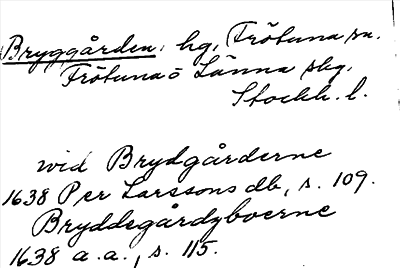 Bryggården, hg, Frötuna sn.
Frötuna ō Länna skg,
Stockh. l.
vid Brydgårderne
1638 Per Larssons db, s. 109.
Bryddegårdzboerne
1638 a.a., s. 115.